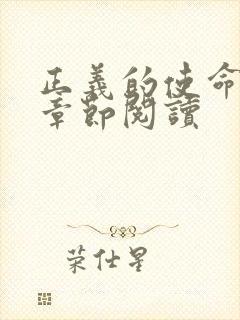 正義的使命
章節閱讀
荣仕星